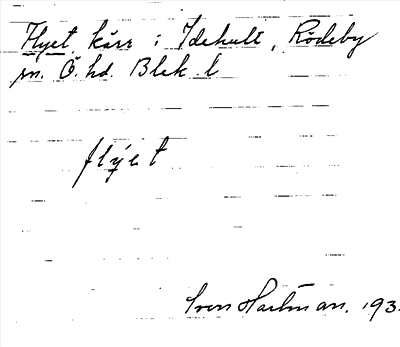 Flyet kärr i Idehult, Rödeby
sn. Ö. hd. Blek. l
flýet
Sven Hartman. 193.